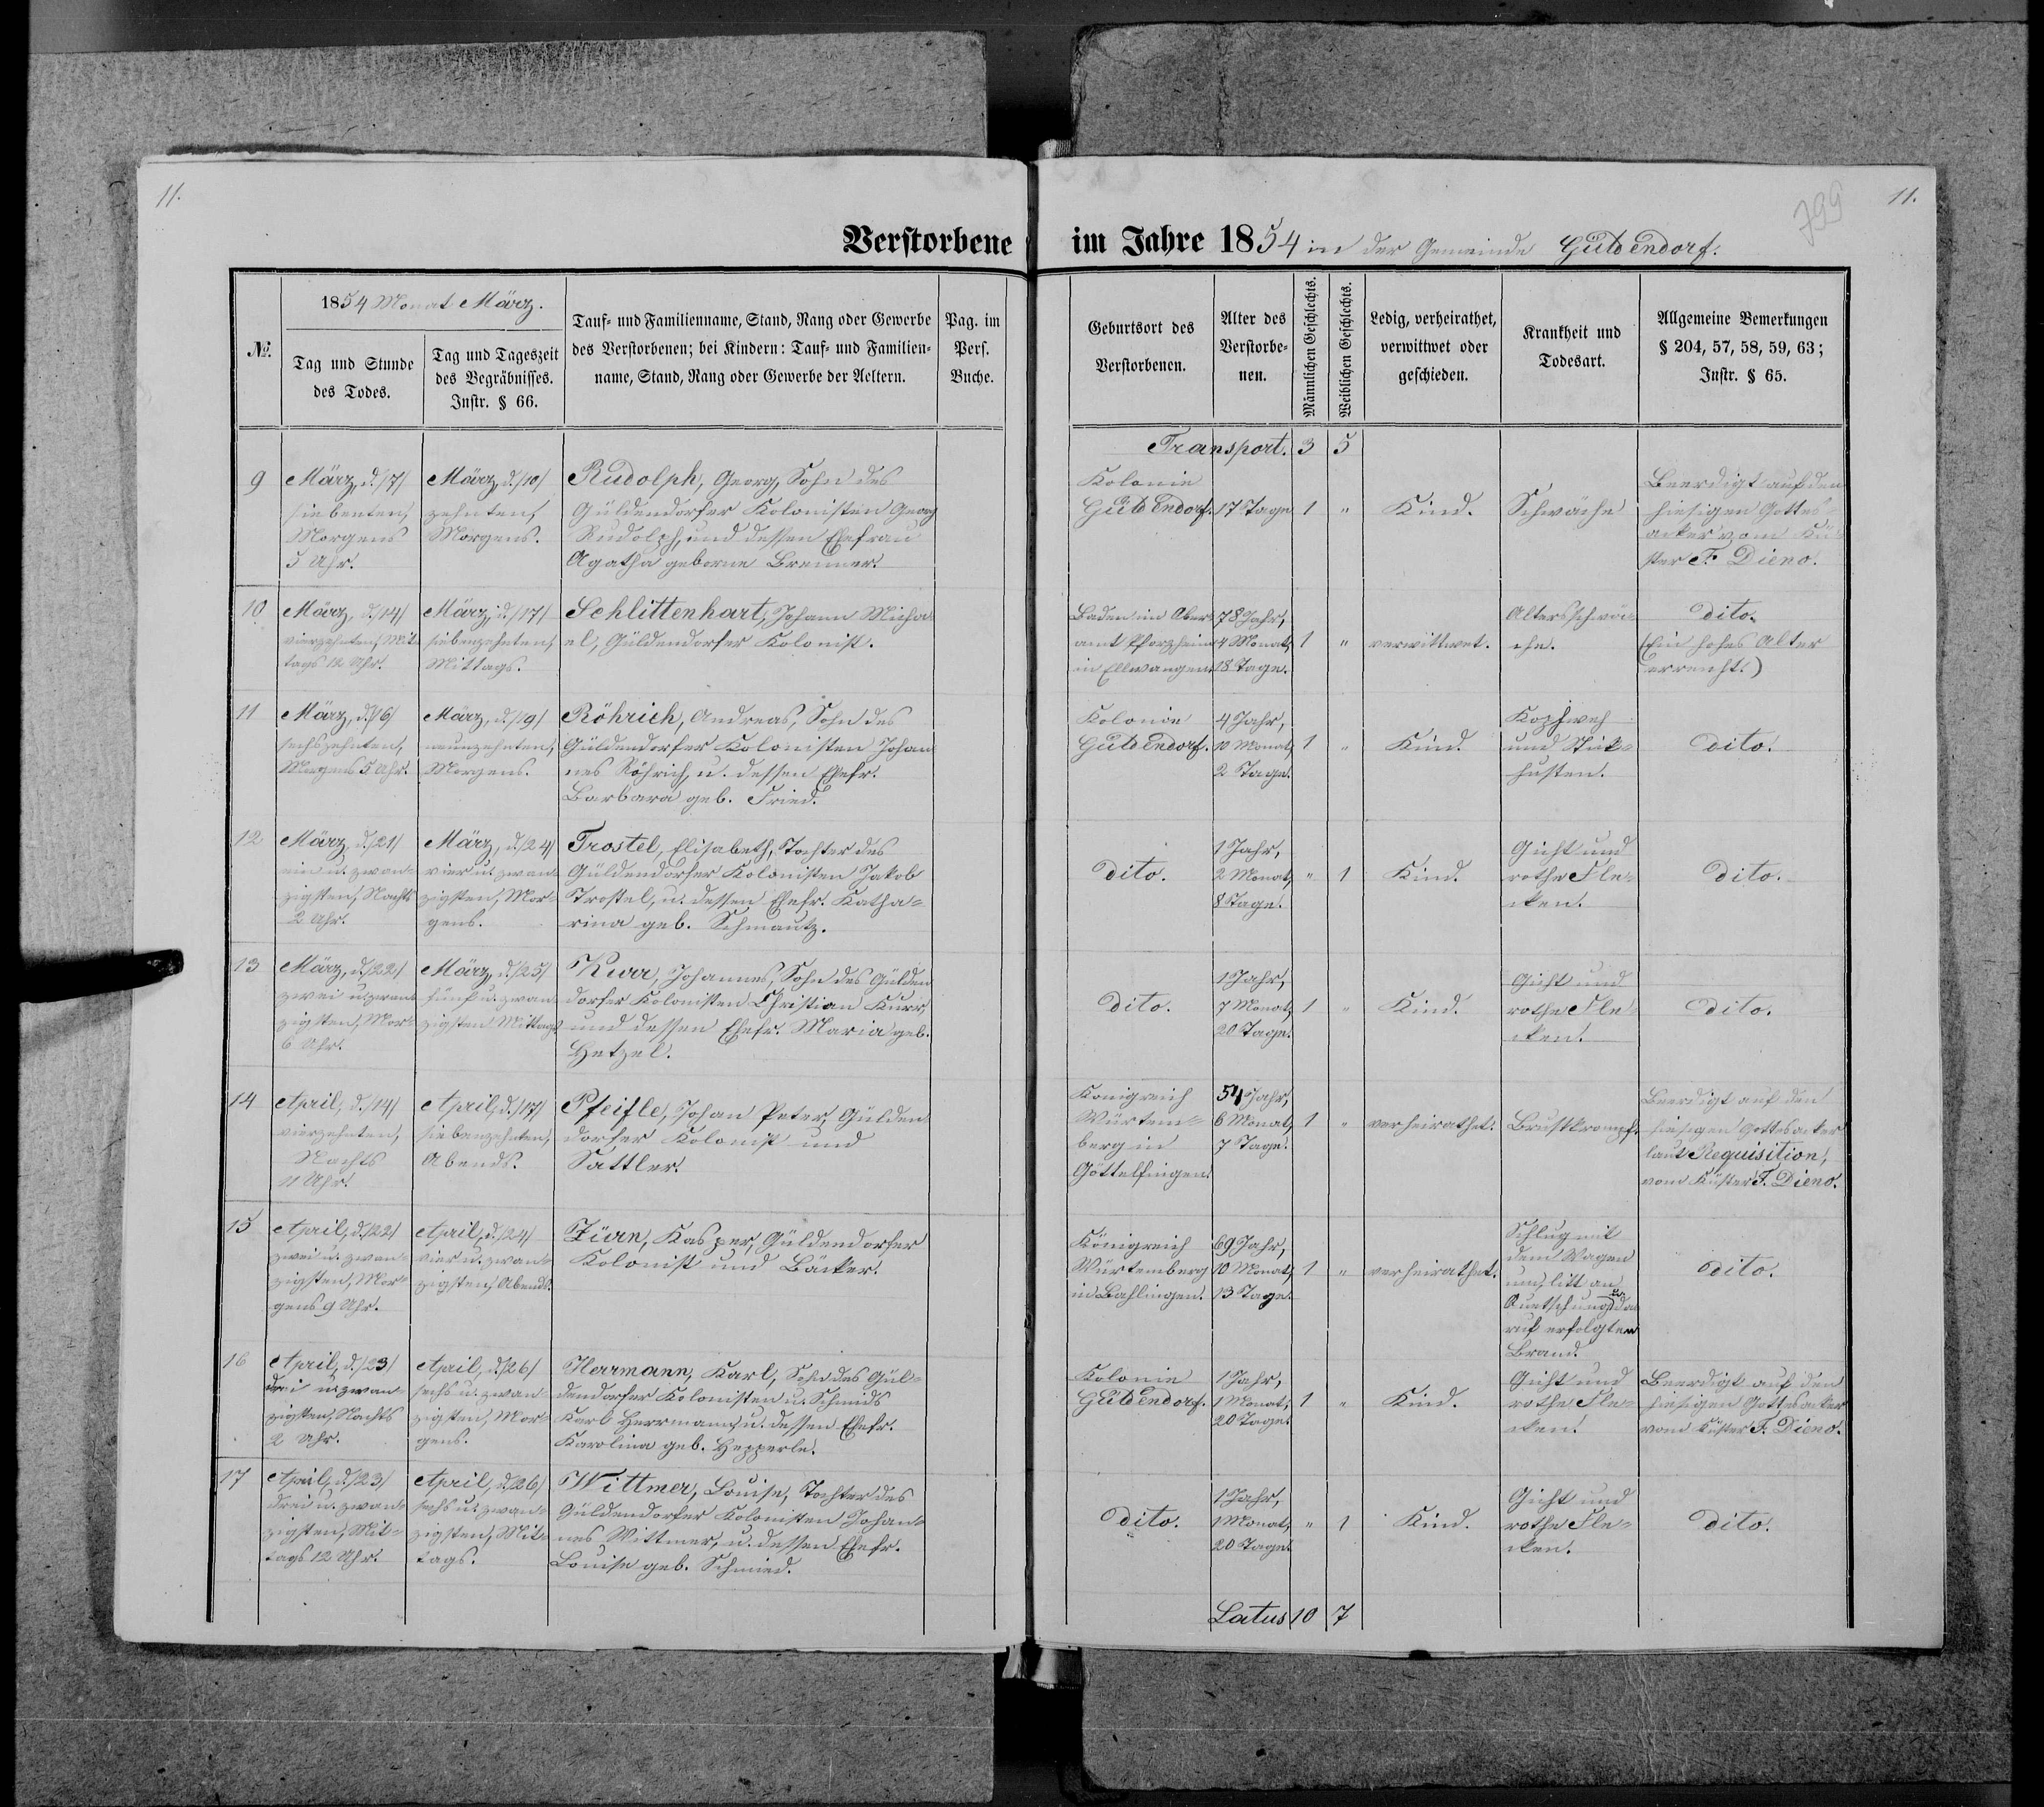 11.
11.
799
Verstorbene im Jahre 1854 in der Gemeinde Güldendorf.
№.
1854 Monat März.
Tag und Stunde
des Todes.
Tag und Tageszeit
des Begräbnisses.
Instr. § 66.
Tauf- und Familienname, Stand, Rang oder Gewerbe
des Verstorbenen; bei Kindern: Tauf- und Familien-
name, Stand, Rang oder Gewerbe der Aeltern.
Pag. im
Pers.
Buche.
Geburtsort des
Verstorbenen.
Alter des
Verstorbe-
nen.
Männlichen Geschlechts.
Weiblichen Geschlechts.
Ledig, verheirathet,
verwittwet oder
geschieden.
Krankheit und
Todesart.
Allgemeine Bemerkungen
§ 204, 57, 58, 59, 63;
Instr. § 65.
Transport. 3 5
9
März, d. /7/
siebenten,
Morgens
5 Uhr.
März, d. /10/
zehnten,
Morgens.
Rudolph, Georg, Sohn des
Güldendorfer Kolonisten Georg
Rudolph, und dessen Ehefrau
Agatha geborne Brenner.
Kolonie
Güldendorf.
17 Tage
1
"
Kind.
Schwäche
Beerdigt auf den
hiesigen Gottes-
acker vom Kü-
ster F. Dieno.
10
März, d. /14/
vierzehnten, Mit-
tags 12 Uhr.
März, d. /17/
siebenzehnten,
Mittags.
Schlittenhart, Johann Micha-
el, Güldendorfer Kolonist.
Baden im Ober-
amt Pforzheim
in Ellwangen.
78 Jahr,
4 Monat,
18 Tage.
1
"
verwittwet.
Altersschwä-
che.
dito.
(Ein hohes Alter
erreicht.)
11
März, d. /16/
sechszehnten,
Morgens 5 Uhr.
März, d. /19/
neunzehnten,
Morgens.
Röhrich, Andreas, Sohn des
Güldendorfer Kolonisten Johan
nes Röhrich, u. dessen Ehefr.
Barbara geb. Fried.
Kolonie
Güldendorf.
4 Jahr,
10 Monat,
2 Tage.
1
"
Kind.
Kopfweh
und Stick-
husten.
dito.
12
März, d. /21/
ein u. zwan-
zigsten, Nachts
2 Uhr.
März, d. /24/
vier u. zwan-
zigsten, Mor-
gens.
Trostel, Elisabeth, Tochter des
Güldendorfer Kolonisten Jakob
Trostel, u. dessen Ehefr. Katha-
rina geb. Schmautz.
dito.
1 Jahr,
2 Monat,
8 Tage.
"
1
Kind.
Gicht und
rothe Fle-
cken.
dito.
13
März, d. /22/
zwei u. zwan-
zigsten, Mor-
6 Uhr.
März, d. /25/
fünf u. zwan-
zigsten Mittags.
Kurr, Johannes, Sohn des Gülden
dorfer Kolonisten Christian Kurr,
und dessen Ehefr. Maria geb.
Hetzel.
dito.
1 Jahr,
7 Monat,
20 Tage.
1
"
Kind.
Gicht und
rothe Fle-
cken.
dito.
14
April, d. /14/
vierzehnten,
Nachts
11 Uhr.
April, d. /17/
siebenzehnten,
Abends.
Pfeifle, Johan Peter, Gülden
dorfer Kolonist und
Sattler.
Königreich
Würtem-
berg in
Göttelfingen.
54 Jahr,
6 Monat,
7 Tage.
1
"
verheirathet.
Brustkrampf.
Beerdigt auf den
hiesigen Gottesacker
laut Requisition,
vom Küster F. Dieno.
15
April, d. /22/
zwei u. zwan-
zigsten, Mor-
gens 9 Uhr.
April, d. /24/
vier u. zwan-
zigsten, Abends.
Zürn, Kasper, Güldendorfer
Kolonist und Bäcker.
Königreich
Würtemberg
in Bahlingen.
69 Jahr,
10 Monat,
13 Tage.
1
"
verheirathet.
Schlug mit
dem Wagen
um, litt an
Quetschung da
rauf erfolgten
Brand.
dito.
16
April, d. /23/
drei u. zwan-
zigsten, Nachts
2 Uhr.
April, d. /26/
sechs u. zwan-
zigsten, Mor-
gens.
Herrmann, Karl, Sohn des Gül-
dendorfer Kolonisten u. Schmids
Karl Herrmann, u. dessen Ehefr.
Karolina geb. Hepperle.
Kolonie
Güldendorf.
1 Jahr,
1 Monat,
20 Tage.
1
"
Kind.
Gicht und
rothe Fle-
cken.
Beerdigt auf den
hiesigen Gottesacker
vom Küster F. Dieno.
17
April, d. /23/
drei u. zwan-
zigsten, Mit-
tags 12 Uhr.
April, d. /26/
sechs u. zwan-
zigsten, Mit-
tags.
Wittmer, Louise, Tochter des
Güldendorfer Kolonisten Johan-
nes Wittmer, u. dessen Ehefr.
Louise geb. Schmied.
dito.
1 Jahr,
1 Monat,
20 Tage.
"
1
Kind.
Gicht und
rothe Fle-
cken.
dito.
Latus 10 7